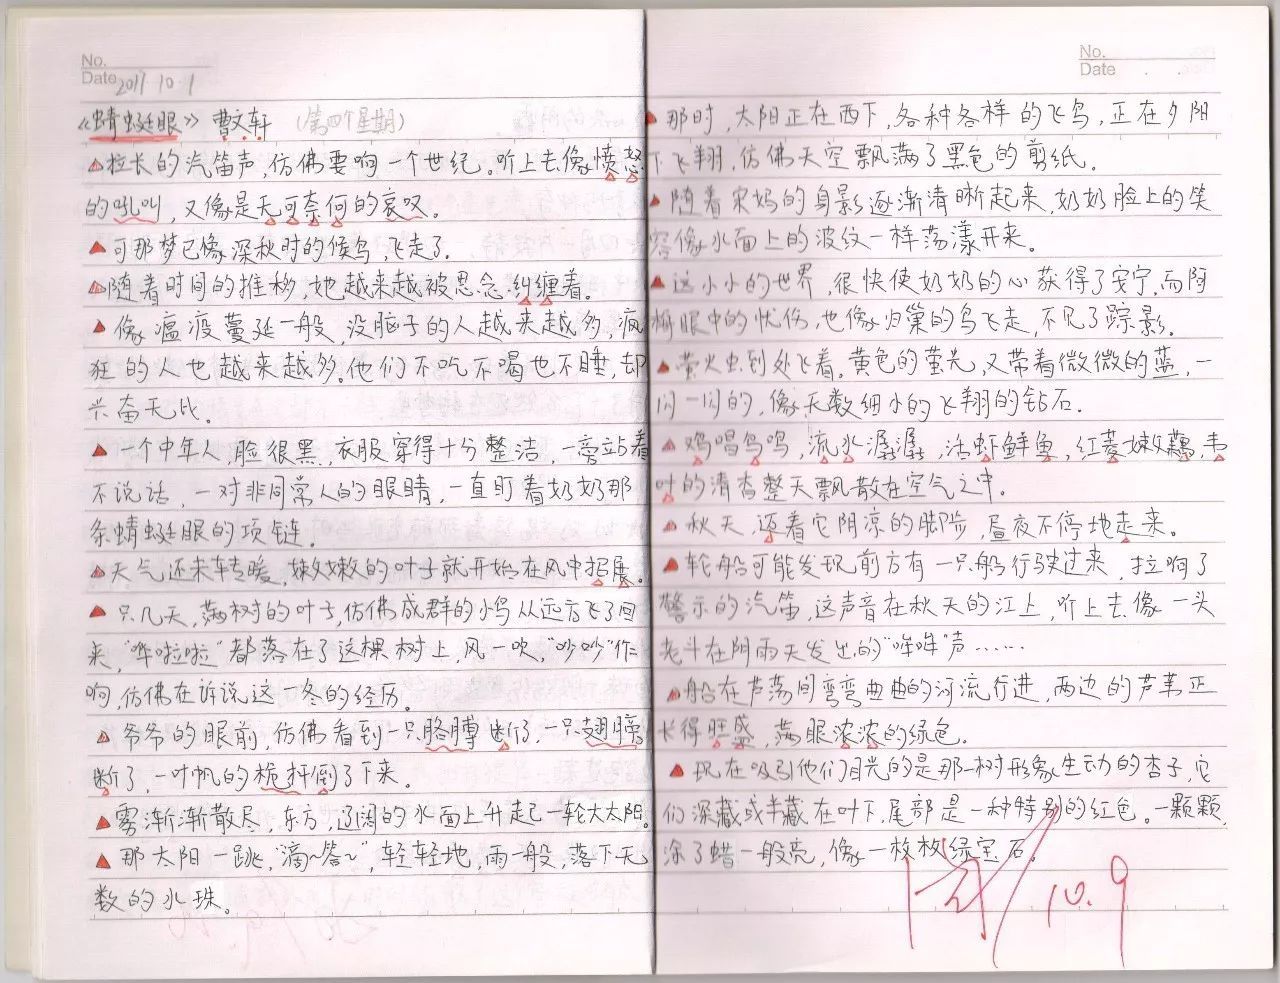 No.
Date 2017 10.1
《蜻蜓眼》 曹文轩 (第四个星期)
拉长的汽笛声,仿佛要响一个世纪。听上去像愤怒
的吼叫,又像是无可奈何的哀叹。
可那梦已像深秋时的候鸟,飞走了。
随着时间的推移,她越来越被思念纠缠着。
像瘟疫蔓延一般,没脑子的人越来越多,疯
狂的人也越来越多。他们不吃不喝也不睡,却
兴奋无比。
一个中年人,脸很黑,衣服穿得十分整洁,一旁站着
不说话,一对非同常人的眼睛,一直盯着奶奶那
条蜻蜓眼的项链。
天气还未转暖,嫩嫩的叶子就开始在风中招展。
只几天,满树的叶子,仿佛成群的小鸟从远方飞了回
来,"哗啦啦"都落在了这棵树上,风一吹,"吵吵"作
响,仿佛在诉说这一冬的经历。
爷爷的眼前,仿佛看到一只胳膊断了,一只翅膀
断了,一叶帆的桅杆倒了下来。
雾渐渐散尽,东方,辽阔的水面上升起一轮大太阳。
那太阳一跳,"滴~答~",轻轻地,雨一般,落下无
数的水珠。
No.
Date
那时,太阳正在西下,各种各样的飞鸟,正在夕阳
下飞翔,仿佛天空飘满了黑色的剪纸。
随着宋妈的身影逐渐清晰起来,奶奶脸上的笑
容像水面上的波纹一样荡漾开来。
这小小的世界,很快使奶奶的心获得了安宁,而阿
梅眼中的忧伤,也像归巢的鸟飞走,不见了踪影。
萤火虫到处飞着,黄色的萤光,又带着微微的蓝,一
闪一闪的,像无数细小的飞翔的钻石。
鸡唱鸟鸣,流水潺潺,活虾鲜鱼,红菱嫩藕,韦
叶的清香整天飘散在空气之中。
秋天,迈着它阴凉的脚步,昼夜不停地走来。
轮船可能发现前方有一只船行驶过来,拉响了
警示的汽笛,这声音在秋天的江上,听上去像一头
老斗在阴雨天发出的"哞哞"声……
船在芦荡间弯弯曲曲的河流行进,两边的芦苇正
长得旺盛,满眼浓浓的绿色。
现在吸引他们目光的是那一树形象生动的杏子,它
们深藏或半藏在叶下,尾部是一种特别的红色。一颗颗,
涂了蜡一般亮,像一枚枚绿宝石。
10.9